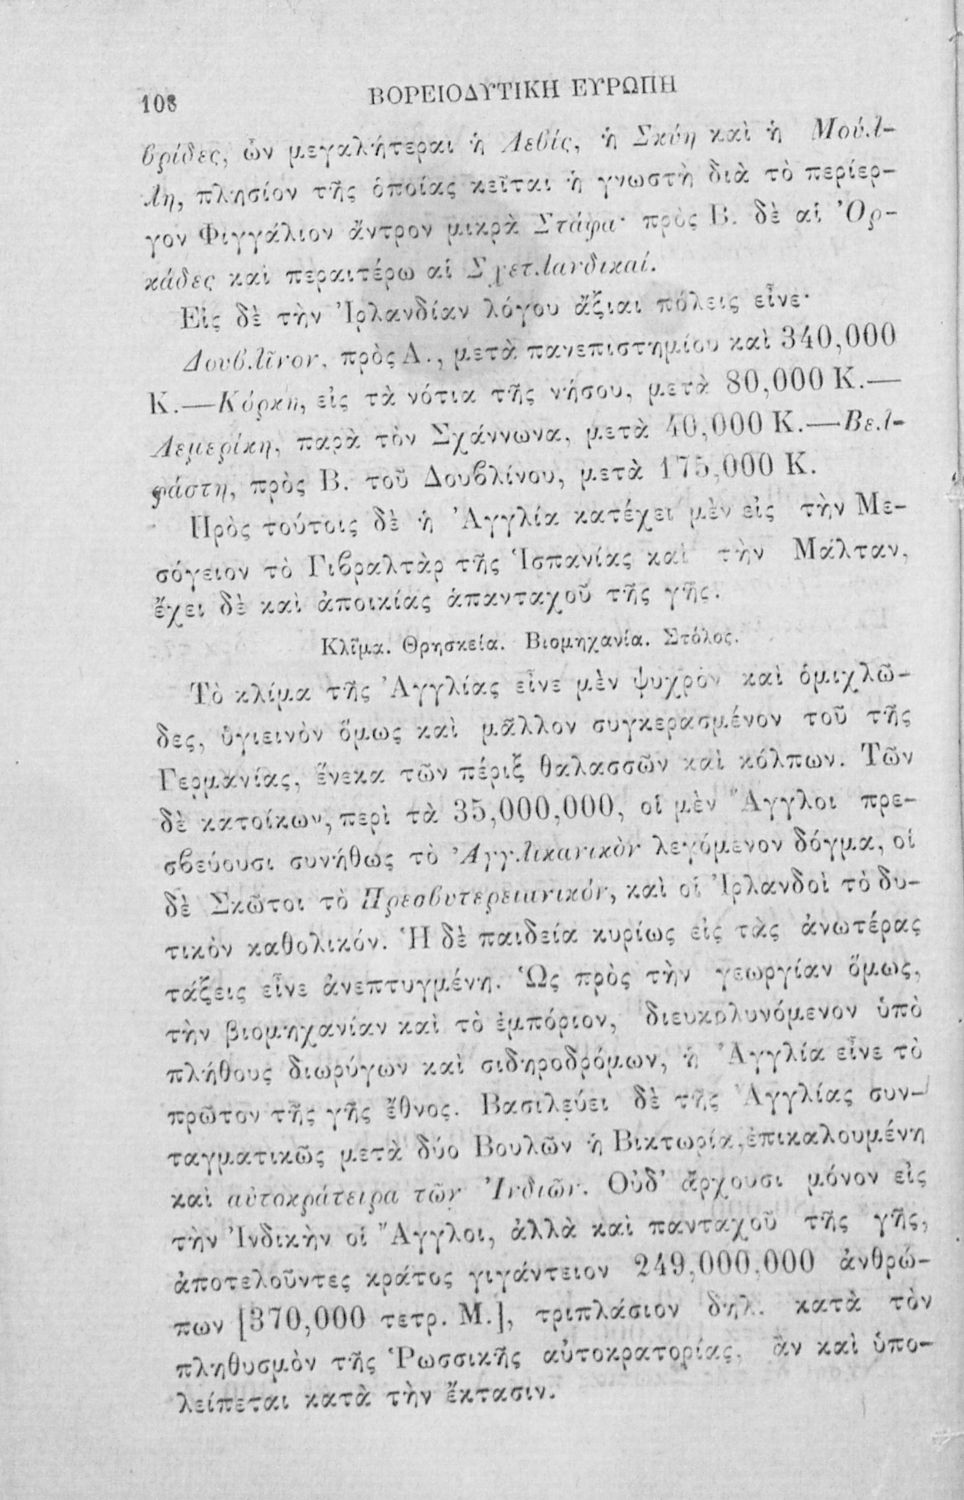 108 ΒΟΡΕΙΟΔΥΤΙΚΗ ΕΥΡΩΠΗ
βρίδες, ὧν μεγαλήτεραι ἡ Λεβίς, ἡ Σκύη καὶ ἡ Μούλ-
λη, πλησίον τῆς ὁποίας κεῖται ἡ γνωστὴ διὰ τὸ περίερ-
γον Φιγγάλιον ἄντρον μικρὰ Στάφα· πρὸς Β. δὲ αἱ Ὀρ-
κάδες καὶ περαιτέρω αἱ Σχετλανδικαί.
Εἰς δὲ τὴν Ἰρλανδίαν λόγου ἄξιαι πόλεις εἶνε·
Δουβλῖνον, πρὸς Α., μετὰ πανεπιστημίου καὶ 340,000
Κ.—Κόρκη, εἰς τὰ νότια τῆς νήσου, μετὰ 80,000 Κ.—
Λεμερίκη, παρὰ τὸν Σχάννωνα, μετὰ 40,000 Κ.—Βελ-
φάστη, πρὸς Β. τοῦ Δουβλίνου, μετὰ 175,000 Κ.
Πρὸς τούτοις δὲ ἡ Ἀγγλία κατέχει μὲν εἰς τὴν Με-
σόγειον τὸ Γιβραλτὰρ τῆς Ἱσπανίας καὶ τὴν Μάλταν,
ἔχει δὲ καὶ ἀποικίας ἁπανταχοῦ τῆς γῆς.
Κλῖμα. Θρησκεία. Βιομηχανία. Στόλος.
Τὸ κλίμα τῆς Ἀγγλίας εἶνε μὲν ψυχρὸν καὶ ὁμιχλῶ-
δες, ὑγιεινὸν ὅμως καὶ μᾶλλον συγκερασμένον τοῦ τῆς
Γερμανίας, ἕνεκα τῶν πέριξ θαλασσῶν καὶ κόλπων. Τῶν
δὲ κατοίκων, περὶ τὰ 35,000,000, οἱ μὲν Ἄγγλοι πρε-
σβεύουσι συνήθως τὸ Ἀγγλικανικὸν λεγόμενον δόγμα, οἱ
δὲ Σκῶτοι τὸ Πρεσβυτερειανικόν, καὶ οἱ Ἰρλανδοὶ τὸ δυ-
τικὸν καθολικόν. Ἡ δὲ παιδεία κυρίως εἰς τὰς ἀνωτέρας
τάξεις εἶνε ἀνεπτυγμένη. Ὡς πρὸς τὴν γεωργίαν ὅμως,
τὴν βιομηχανίαν καὶ τὸ ἐμπόριον, διευκολυνόμενον ὑπὸ
πλήθους διωρύγων καὶ σιδηροδρόμων, ἡ Ἀγγλία εἶνε τὸ
πρῶτον τῆς γῆς ἔθνος. Βασιλεύει δὲ τῆς Ἀγγλίας συν-
ταγματικῶς μετὰ δύο Βουλῶν ἡ Βικτωρία, ἐπικαλουμένη
καὶ αὐτοκράτειρα τῶν Ἰνδιῶν. Οὐδ' ἄρχουσι μόνον εἰς
τὴν Ἰνδικὴν οἱ Ἄγγλοι, ἀλλὰ καὶ πανταχοῦ τῆς γῆς,
ἀποτελοῦντες κράτος γιγάντειον 249,000,000 ἀνθρώ-
πων [370,000 τετρ. Μ.], τριπλάσιον δηλ. κατὰ τὸν
πληθυσμὸν τῆς Ῥωσσικῆς αὐτοκρατορίας, ἂν καὶ ὑπο-
λείπεται κατὰ τὴν ἔκτασιν.